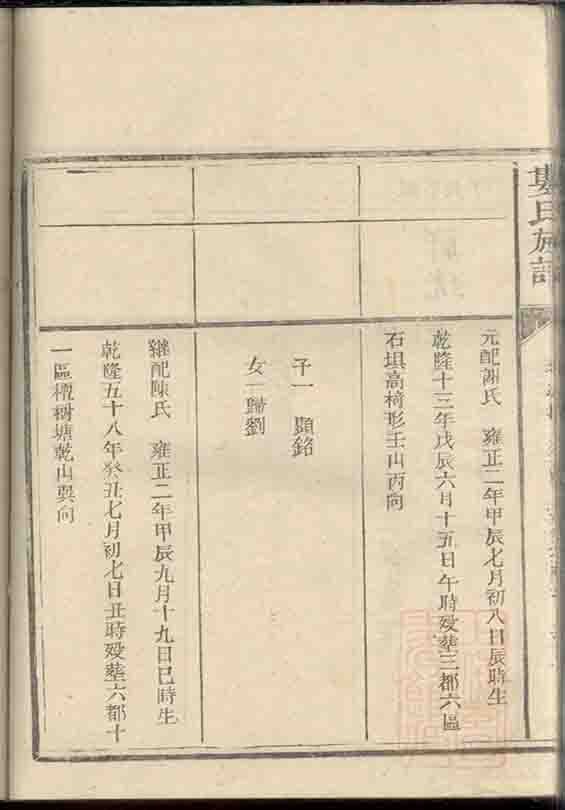 婁氏族譜
元配謝氏　雍正二年甲辰七月初八日辰時生
乾隆十三年戊辰六月十五日午時歿塟三都六區
石埧高椅形壬山丙向
子一　顯銘
女一歸劉
継配陳氏　雍正二年甲辰九月十九日巳時生
乾隆五十八年癸丑七月初七日丑時歿塟六都十
一區檀樹塘乾山巽向